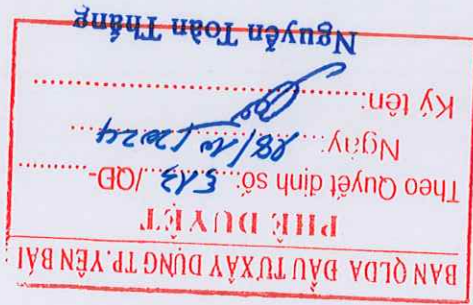 BAN QLDA ĐẦU TƯ XÂY DỰNG TP. YÊN BÁI
PHÊ DUYỆT
Theo Quyết định số: 513 /QĐ-
Ngày: 28/10/2024
Ký tên:
Nguyễn Toàn Thắng